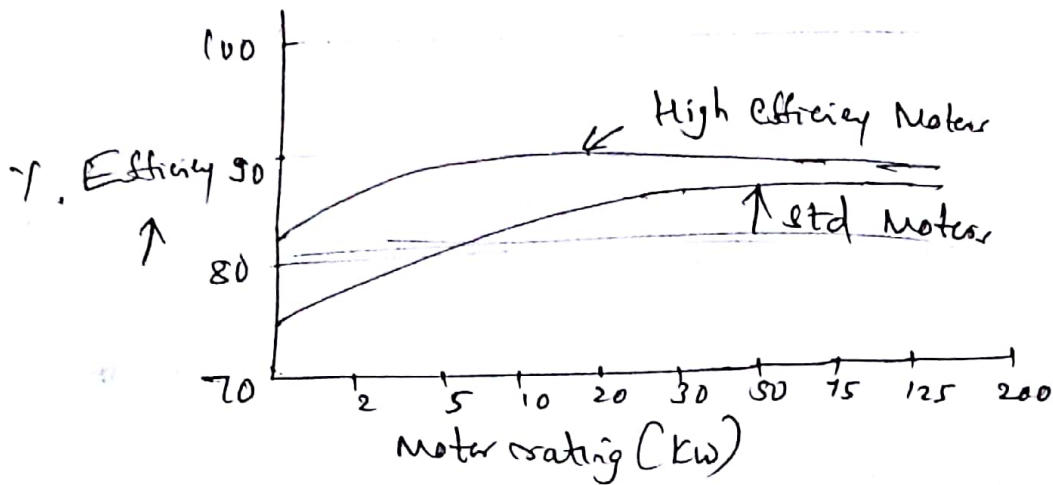 100
High Efficiency Motors
% Efficiency 90
↑ Std Motors
80
70
2 5 10 20 30 50 75 125 200
Motor rating (kW)